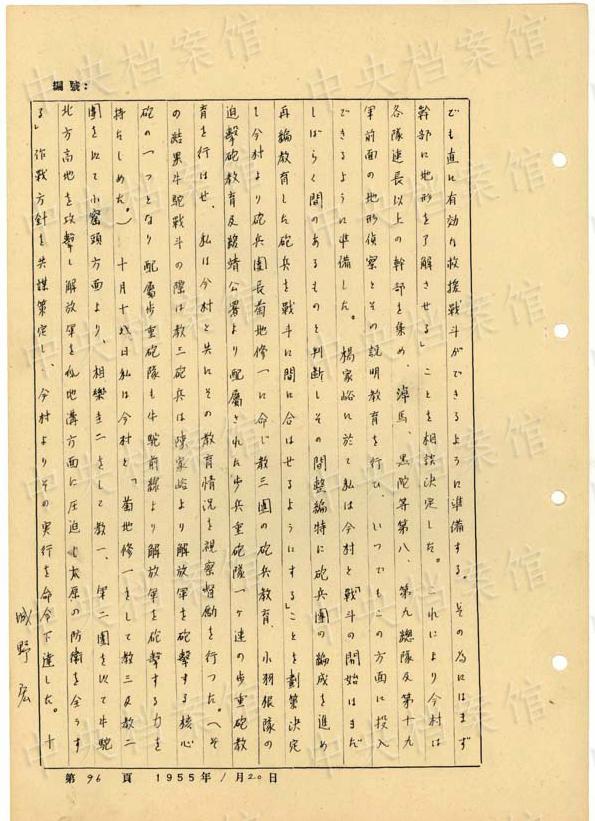 編號：
でも直に有効な救援戦斗ができるように準備する。その為にはまず
幹部に地形を了解させる」ことを相談決定した。これにより今村は
各隊連長以上の幹部を集め、淖馬、黒陀等第八、第九總隊及第十九
軍前面の地形偵察とその説明教育を行ひ、いつでもこの方面に投入
できるように準備した。楊家峪に於て私は今村と「戦斗の開始はまだ
しばらく間のあるものと判断しその間整編特に砲兵團の編成を進め
再編教育した砲兵を戦斗に間に合はせるようにする」ことを劃策決定
し今村より砲兵團長菊地修一に命じ教三團の砲兵教育、小羽根隊の
迫撃砲教育及綏靖公署より配属された歩兵重砲隊一ケ連の歩重砲教
育を行はせ、私は今村と共にその教育情況を視察督励を行つた。（そ
の結果牛駝戦斗の際は教三砲兵は陳家峪より解放軍を砲撃する核心
砲の一つとなり配属歩重砲隊も牛駝前線より解放軍を砲撃する力を
持たしめた。）十月十 日私は今村と「菊地修一をして教三及教二
團を以て小窑頭方面より、相樂圭二をして教一、軍二團を以て牛駝
北方高地を攻撃し解放軍を 地溝方面に圧迫し太原の防衛を全うす
る」作戦方針を共謀策定し、今村よりその実行を命令下達した。十
城野宏
第96頁 1955年1月20日
中央档案馆